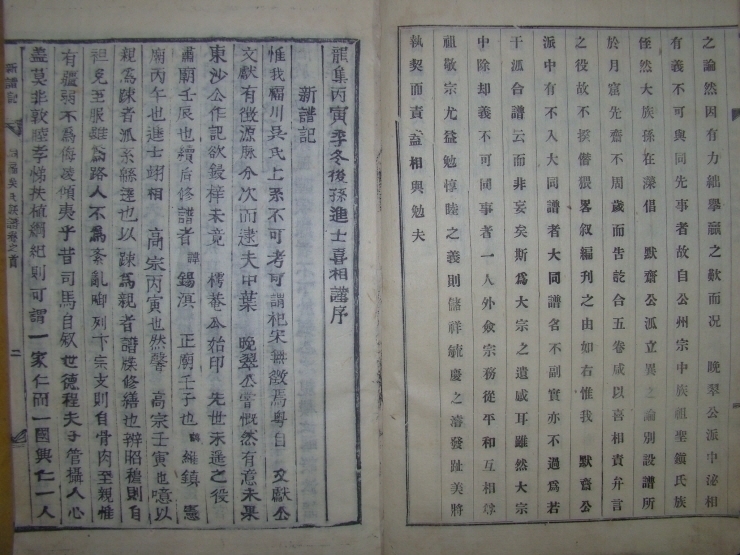 之論然因有力絀擧贏之歎而况 晩翠公派中泌相
有義不可與同先事者故自公州宗中族祖聖鎭氏族
侄然大族孫在藻倡 默齋公派立異之論別設譜所
於月窟先齋不周歲而告訖合五卷咸以喜相責弁言
之役故不揆僭猥畧叙編刊之由如右惟我 默齋公
派中有不入大同譜者大同譜名不副實亦不過爲若
干派合譜云而非妄矣斯爲大宗之遺感耳雖然大宗
中除却義不可同事者一人外僉宗務從平和互相
祖敬宗尤益勉惇睦之義則儲祥毓慶之 發趾美將
執契而責 益相與勉夫
龍集丙寅季冬後孫進士喜相謹序
新譜記
惟我 川吳氏上系不可考可謂杞宋無徵焉粤自 文獻公
文獻有徵源脉分次而逮夫中葉 晩翠公嘗慨然有意未果
東沙公作記欲鋟梓未竟 樗菴公始印 先世未遑之役
肅廟壬辰也續后修譜者 諱 錫淇 正廟壬子也 諱 維鎭 憲
廟丙午也進士翊相 高宗丙寅也然馨 高宗壬寅也噫以
親爲疎者派系 遠也以疎爲親者譜牒修繕也辨昭穆則自
祖免至服雖爲路人不爲紊亂 列于宗支則自骨肉至親惟
有疆弱不爲侮凌傾夷乎昔司馬自叙世德程夫子管攝人心
盖莫非敦睦孝悌扶植綱紀則可謂一家仁而一國興仁一人
新譜記
川吳氏族譜卷之首
二